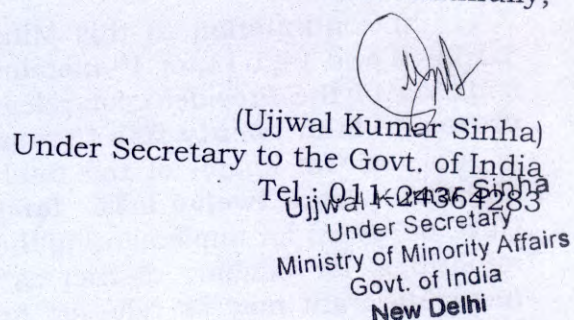 (Ujjwal Kumar Sinha)
Under Secretary to the Govt. of India
Tel : 011-24364283
Ujjwal Kumar Sinha
Under Secretary
Ministry of Minority Affairs
Govt. of India
New Delhi